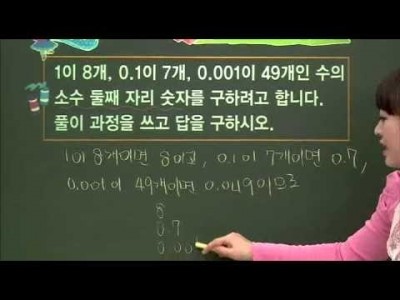 1이 8개, 0.1이 7개, 0.001이 49개인 수의
소수 둘째 자리 숫자를 구하려고 합니다.
풀이 과정을 쓰고 답을 구하시오.
1이 8개이면 8이고, 0.1이 7개이면 0.7,
0.001이 49개이면 0.049이므로
8
0.7
0.00